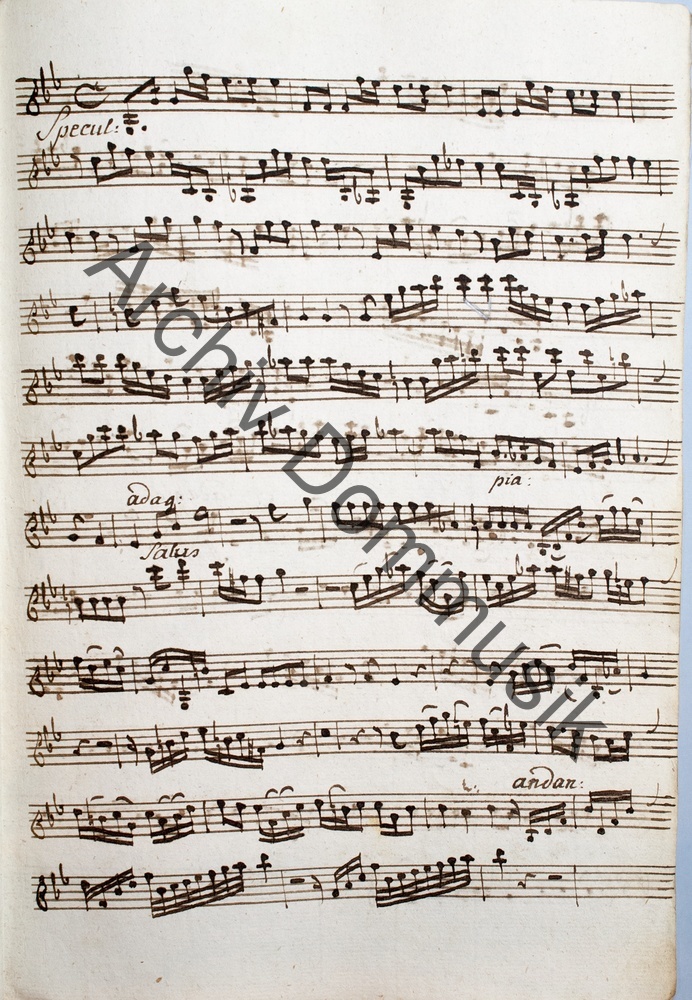 Specul:
pia:
adag:
Salus
andan:
Archiv Dommusik